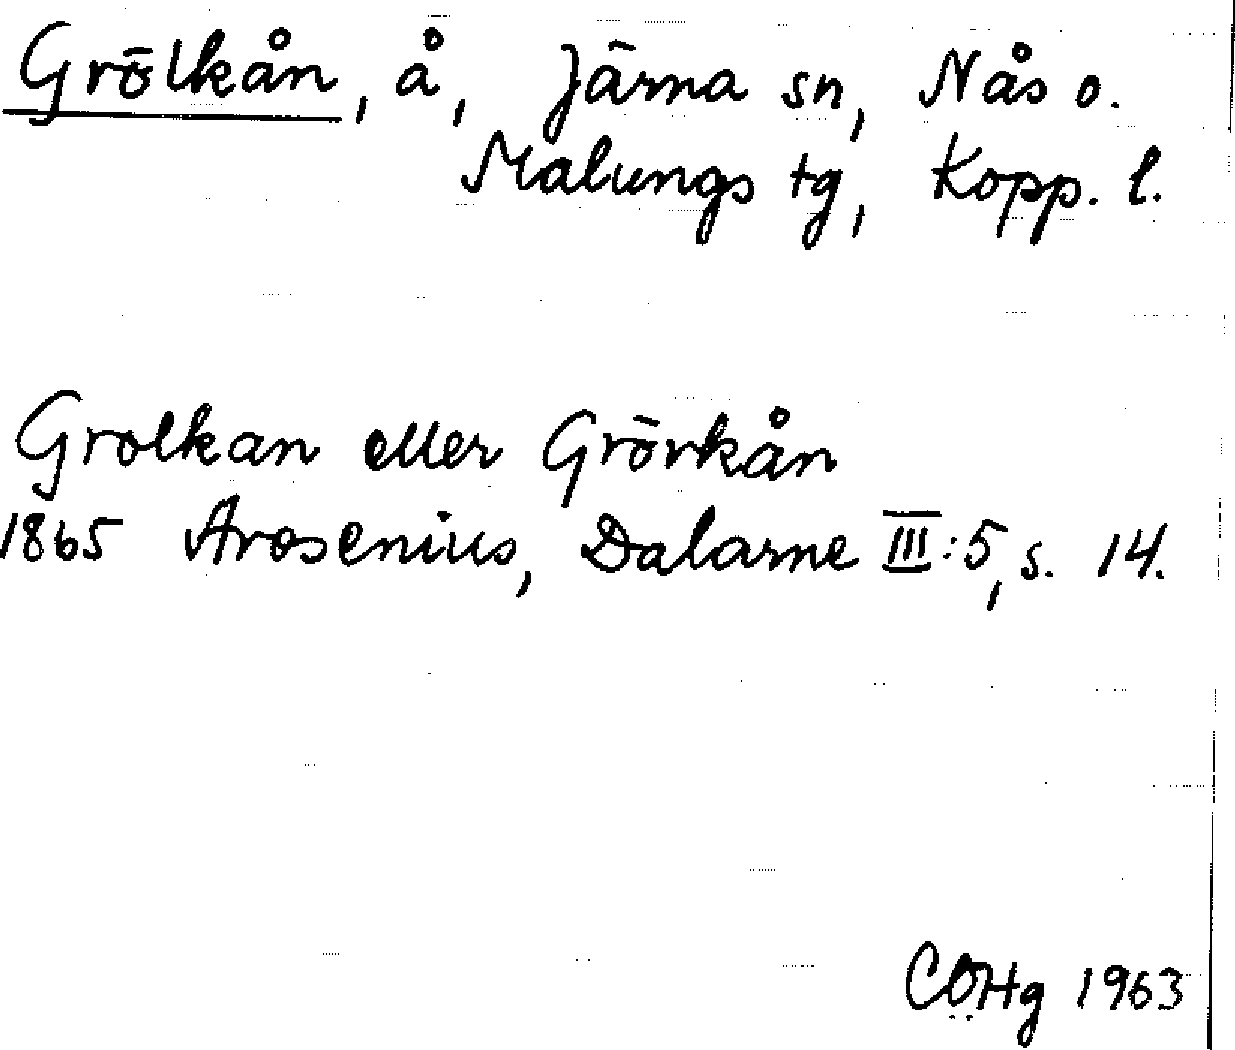 Grölkån, å, Järna sn, Nås o.
Malungs tg, Kopp. l.
Grolkan eller Grövkån
1865 Arosenius, Dalarne III:5, s. 14.
CÖHg 1963